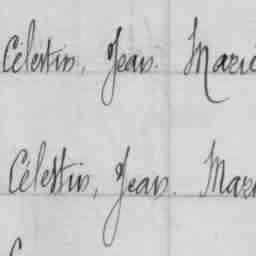 Célestin, Jean. Marie
Célestin, Jean. Mari